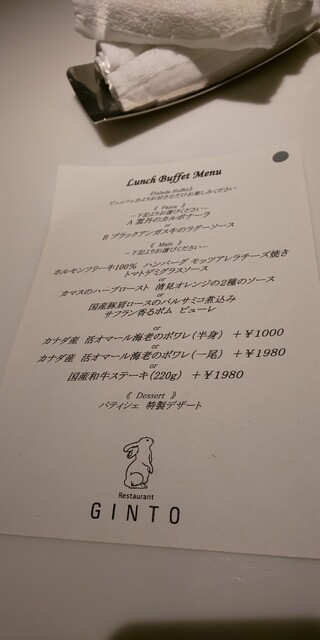 Lunch Buffet Menu
《Salada Buffet》
ブュッフェ台よりお好きなだけお楽しみください
《 Pasta 》
－下記よりお選びください－
A 雲丹のカルボナーラ
or
B ブラックアンガス牛のラグーソース
《 Main 》
－下記よりお選びください－
ホルモンフリー牛100% ハンバーグ モッツアレラチーズ焼き
トマトデミグラスソース
or
カマスのハーブロースト 清見オレンジの2種のソース
or
国産豚肩ロースのバルサミコ煮込み
サフラン香るポム ピューレ
or
カナダ産 活オマール海老のポワレ(半身) +¥1000
or
カナダ産 活オマール海老のポワレ(一尾) +¥1980
or
国産和牛ステーキ(220g) +¥1980
《 Dessert 》
パティシェ 特製デザート
Restaurant
GINTO